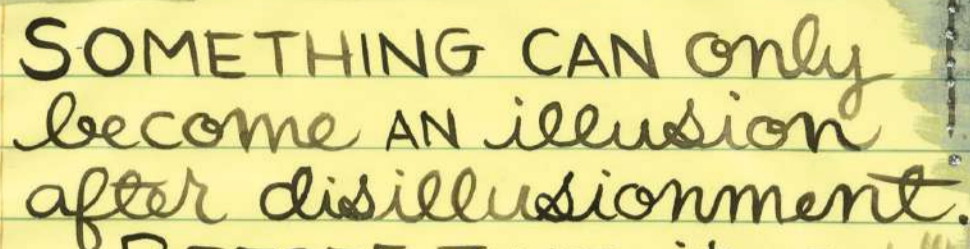 SOMETHING CAN only
become AN illusion
after disillusionment.